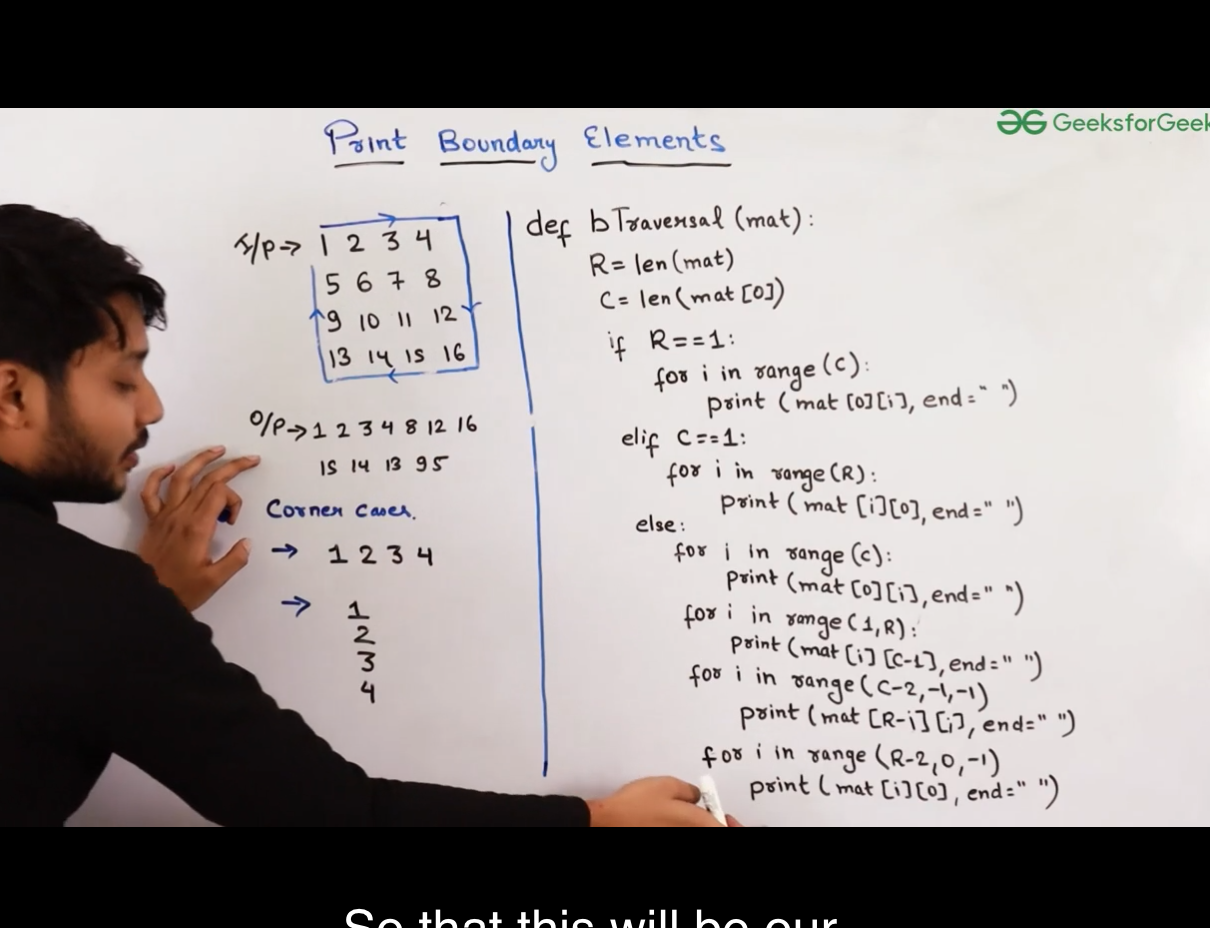 GeeksforGeek
Print Boundary Elements
I/P→ 1 2 3 4
5 6 7 8
9 10 11 12
13 14 15 16
O/P→ 1 2 3 4 8 12 16
15 14 13 9 5
Corner cases.
→ 1 2 3 4
→ 1
2
3
4
def bTraversal (mat):
R= len(mat)
C= len(mat [0])
if R==1:
for i in range (C):
print (mat [0][i], end=" ")
elif C==1:
for i in range (R):
print (mat [i][0], end=" ")
else:
for i in range (c):
print (mat [0][i], end=" ")
for i in range (1,R):
print (mat [i] [C-1], end=" ")
for i in range (C-2,-1,-1)
print (mat [R-i] [i], end=" ")
for i in range (R-2,0,-1)
print (mat [i][0], end=" ")
So that this will be our